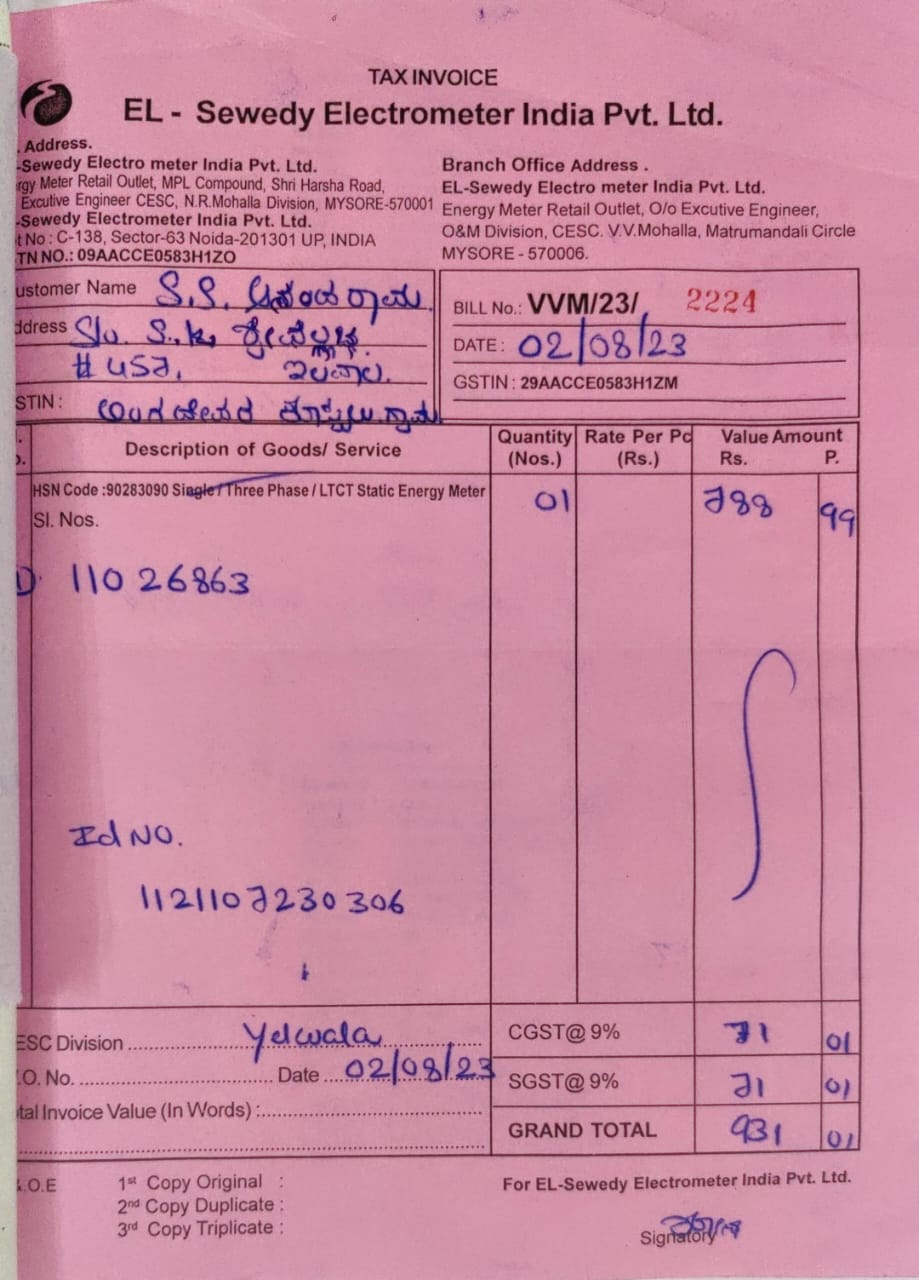 TAX INVOICE
EL - Sewedy Electrometer India Pvt. Ltd.
Address.
-Sewedy Electro meter India Pvt. Ltd.
rgy Meter Retail Outlet, MPL Compound, Shri Harsha Road,
Excutive Engineer CESC, N.R.Mohalla Division, MYSORE-570001
-Sewedy Electrometer India Pvt. Ltd.
t No : C-138, Sector-63 Noida-201301 UP, INDIA
TN NO.: 09AACCE0583H1ZO
Branch Office Address .
EL-Sewedy Electro meter India Pvt. Ltd.
Energy Meter Retail Outlet, O/o Excutive Engineer,
O&M Division, CESC. V.V.Mohalla, Matrumandali Circle
MYSORE - 570006.
ustomer Name S.S.
ddress S/o. S.K.
# 457, ಇಲವಾಲ.
STIN :
BILL No.: VVM/23/ 2224
DATE : 02/08/23
GSTIN : 29AACCE0583H1ZM
Description of Goods/ Service
Quantity (Nos.)
Rate Per Pc (Rs.)
Value Amount
Rs. P.
HSN Code :90283090 Single / Three Phase / LTCT Static Energy Meter 01 788 99
Sl. Nos.
11026863
Id NO.
1121107230306
ESC Division Yelwala
.O. No. Date 02/08/23
tal Invoice Value (In Words) :
CGST@ 9% 71 01
SGST@ 9% 71 01
GRAND TOTAL 931 01
.O.E
1st Copy Original :
2nd Copy Duplicate :
3rd Copy Triplicate :
For EL-Sewedy Electrometer India Pvt. Ltd.
Signatory